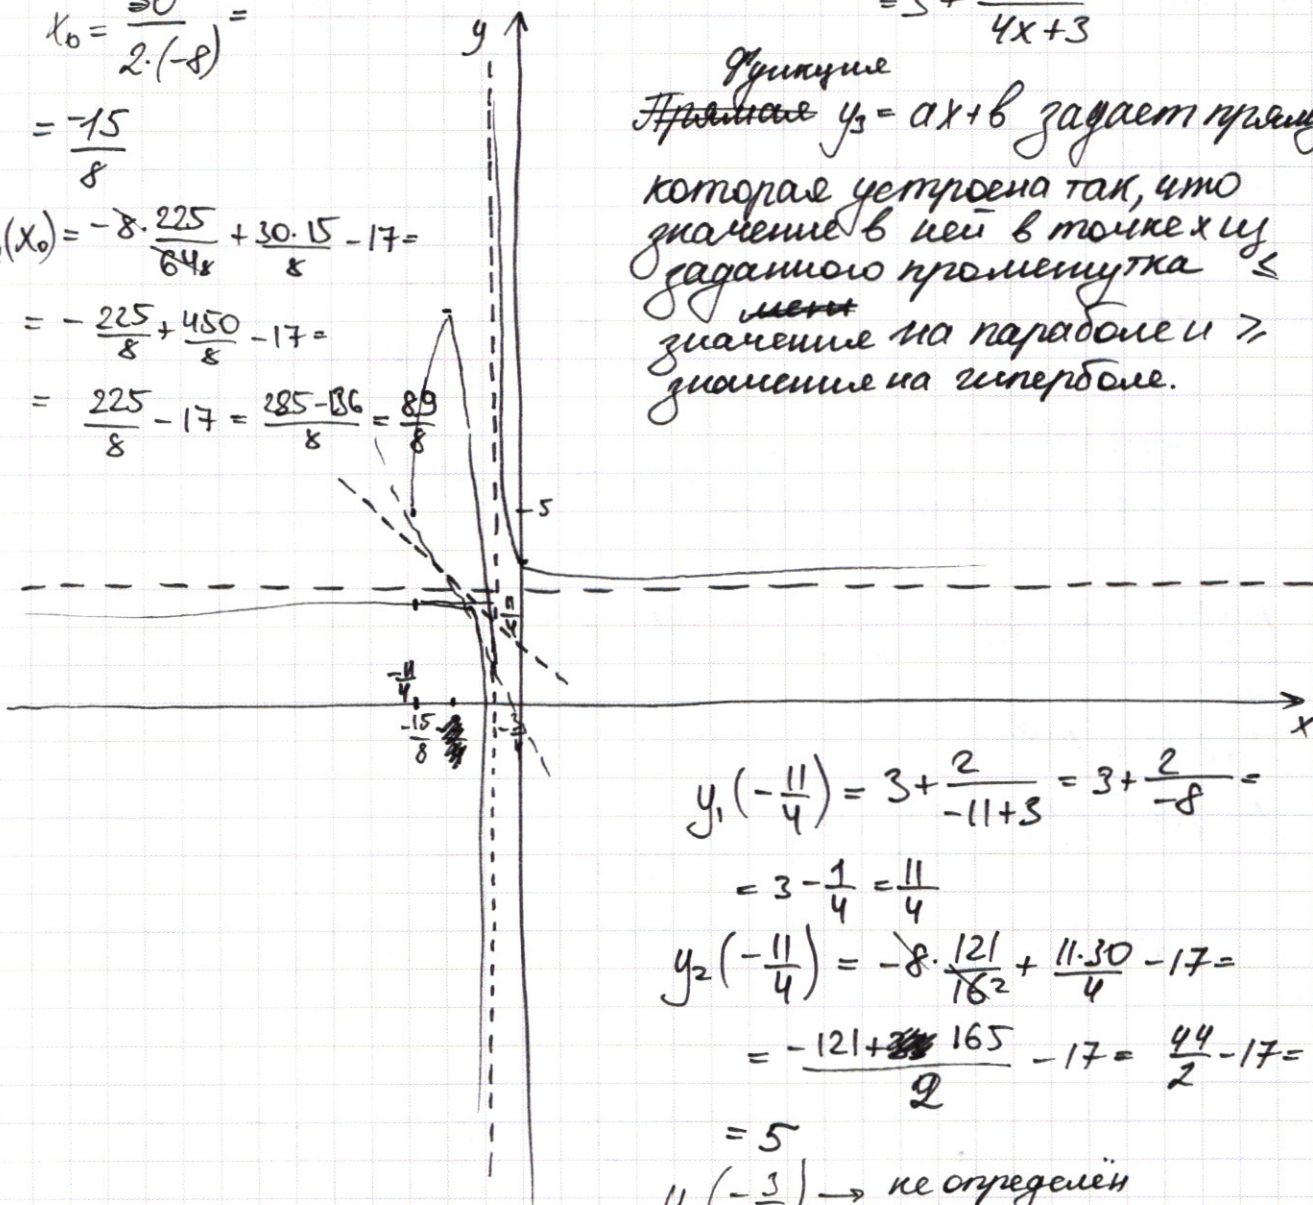 x₀ = 30/(2·(-8)) =
= -15/8
(x₀) = -8·225/64 + 30·15/8 - 17 =
= -225/8 + 450/8 - 17 =
= 225/8 - 17 = 285-136/8 = 89/8
y
5
11/4
-11/4
-15/8
-3/4
x
4x+3
Функция
Прямая y₃ = ax+b задает прям
которая устроена так, что
значение в ней в точке x из
заданного промежутка ≤
мень
значения на параболе и ≥
значения на гиперболе.
y₁(-11/4) = 3 + 2/(-11+3) = 3 + 2/-8 =
= 3 - 1/4 = 11/4
y₂(-11/4) = -8·121/16 2 + 11·30/4 - 17 =
= (-121+165)/2 - 17 = 44/2 - 17 =
= 5
(-3 → не определён